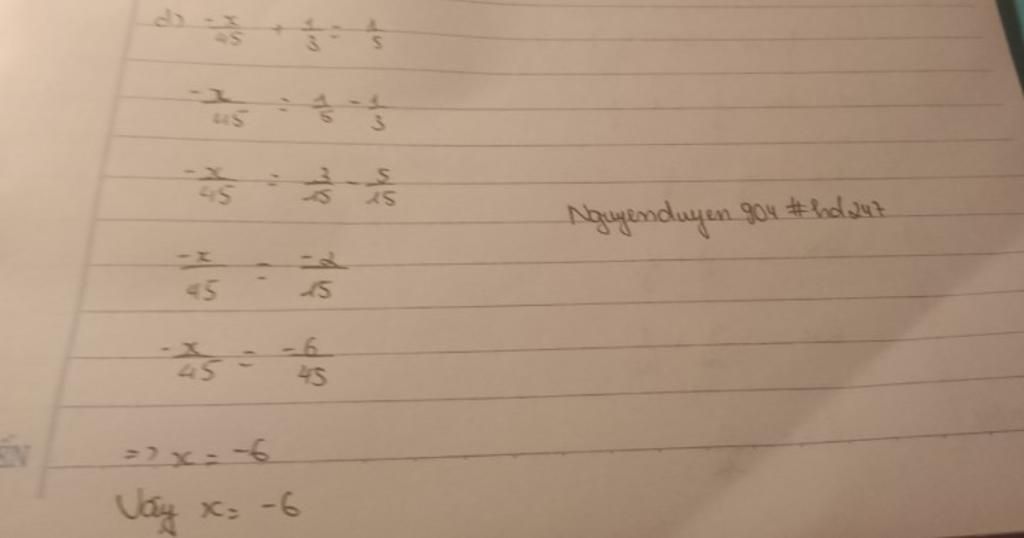 d) -x/45 + 1/3 = 1/5
-x/45 = 1/5 - 1/3
-x/45 = 3/15 - 5/15
Nguyenduyen 904 #hd247
-x/45 = -2/15
-x/45 = -6/45
=> x = -6
Vậy x = -6